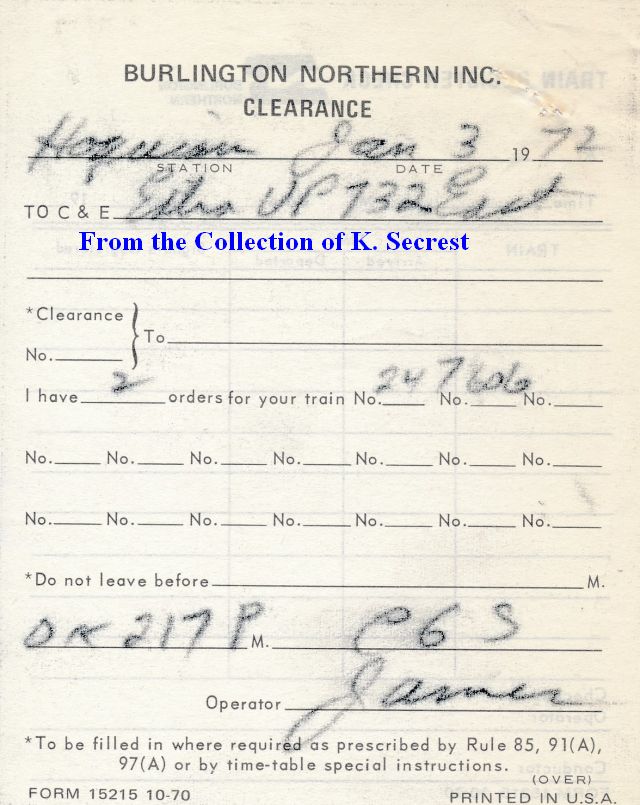 BURLINGTON NORTHERN INC.
CLEARANCE
Hoquiam Jan 3 19 72
STATION DATE
TO C & E Extra UP 732 East
From the Collection of K. Secrest
*Clearance
No. } To
I have 2 orders for your train No. 247 No. 606 No.
No. No. No. No. No. No. No.
No. No. No. No. No. No. No.
*Do not leave before M.
OK 217 P M. C G S
Operator James
*To be filled in where required as prescribed by Rule 85, 91(A),
97(A) or by time-table special instructions.
(OVER)
FORM 15215 10-70 PRINTED IN U.S.A.